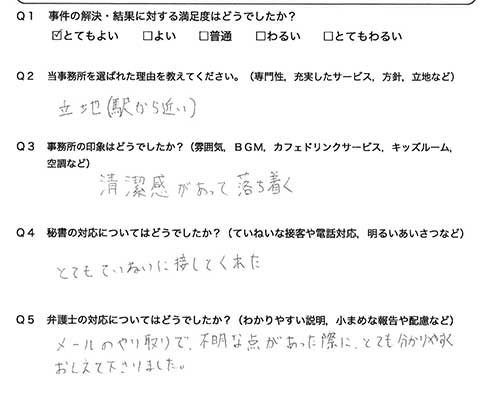 Q1 事件の解決・結果に対する満足度はどうでしたか？
☑とてもよい □よい □普通 □わるい □とてもわるい
Q2 当事務所を選ばれた理由を教えてください。（専門性，充実したサービス，方針，立地など）
立地(駅から近い)
Q3 事務所の印象はどうでしたか？（雰囲気，ＢＧＭ，カフェドリンクサービス，キッズルーム，
空調など）
清潔感があって落ち着く
Q4 秘書の対応についてはどうでしたか？（ていねいな接客や電話対応，明るいあいさつなど）
とてもていねいに接してくれた
Q5 弁護士の対応についてはどうでしたか？（わかりやすい説明，小まめな報告や配慮など）
メールのやり取りで、不明な点があった際に、とても分かりやすく
おしえて下さりました。